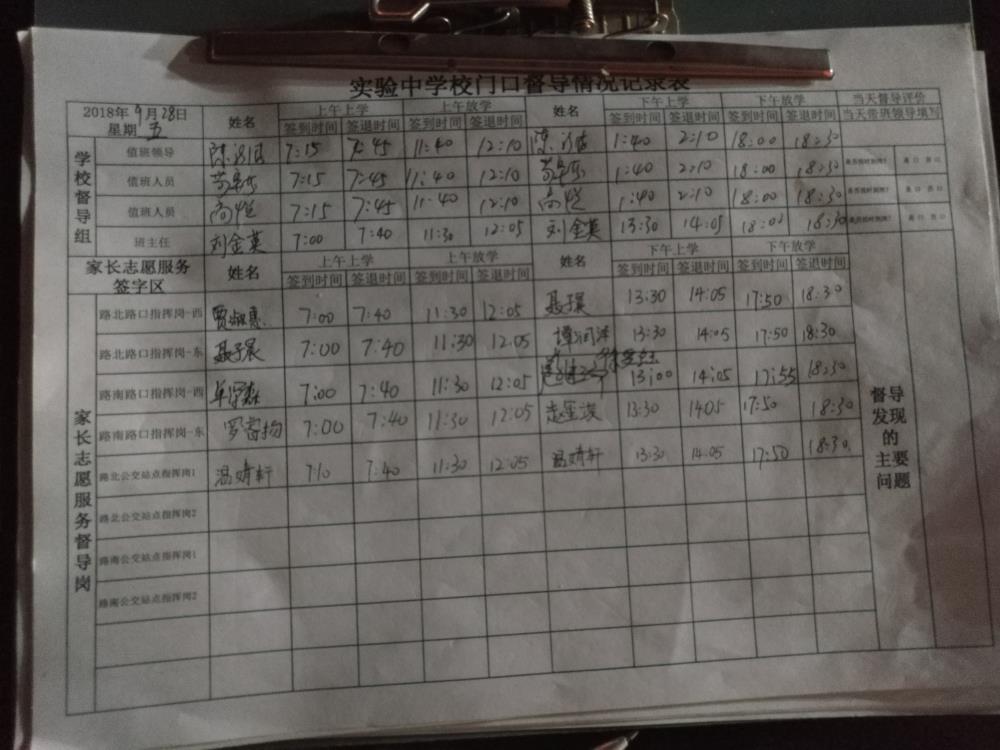 实验中学校门口督导情况记录表
2018年 9月 28日 星期 五 姓名 上午上学 上午放学 姓名 下午上学 下午放学 当天督导评价
签到时间 签退时间 签到时间 签退时间 签到时间 签退时间 签到时间 签退时间 当天带班领导填写
学校督导组
值班领导 陈 7:15 7:45 11:40 12:10 陈 1:40 2:10 18:00 18:30
值班人员 7:15 7:45 11:40 12:10 1:40 2:10 18:00 18:30 是否按时到岗? 是口 否口
值班人员 高 7:15 7:45 11:40 12:10 高 1:40 2:10 18:00 18:30 是否按时到岗? 是口 否口
班主任 刘金英 7:00 7:40 11:30 12:05 刘金英 13:30 14:05 18:00 18:30 是否按时到岗? 是口 否口
家长志愿服务签字区 姓名 上午上学 上午放学 姓名 下午上学 下午放学
签到时间 签退时间 签到时间 签退时间 签到时间 签退时间 签到时间 签退时间
家长志愿服务督导岗
路北路口指挥岗-西 贾淑惠 7:00 7:40 11:30 12:05 聂子晨 13:30 14:05 17:50 18:30
路北路口指挥岗-东 聂子晨 7:00 7:40 11:30 12:05 13:30 14:05 17:50 18:30
路南路口指挥岗-西 7:00 7:40 11:30 12:05 13:00 14:05 17:55 18:30
路南路口指挥岗-东 罗 7:00 7:40 11:30 12:05 赵 13:30 1405 17:50 18:30
路北公交站点指挥岗1 温婧轩 7:10 7:40 11:30 12:05 温婧轩 13:30 14:05 17:50 18:30
路北公交站点指挥岗2
路南公交站点指挥岗1
路南公交站点指挥岗2
督导发现的主要问题